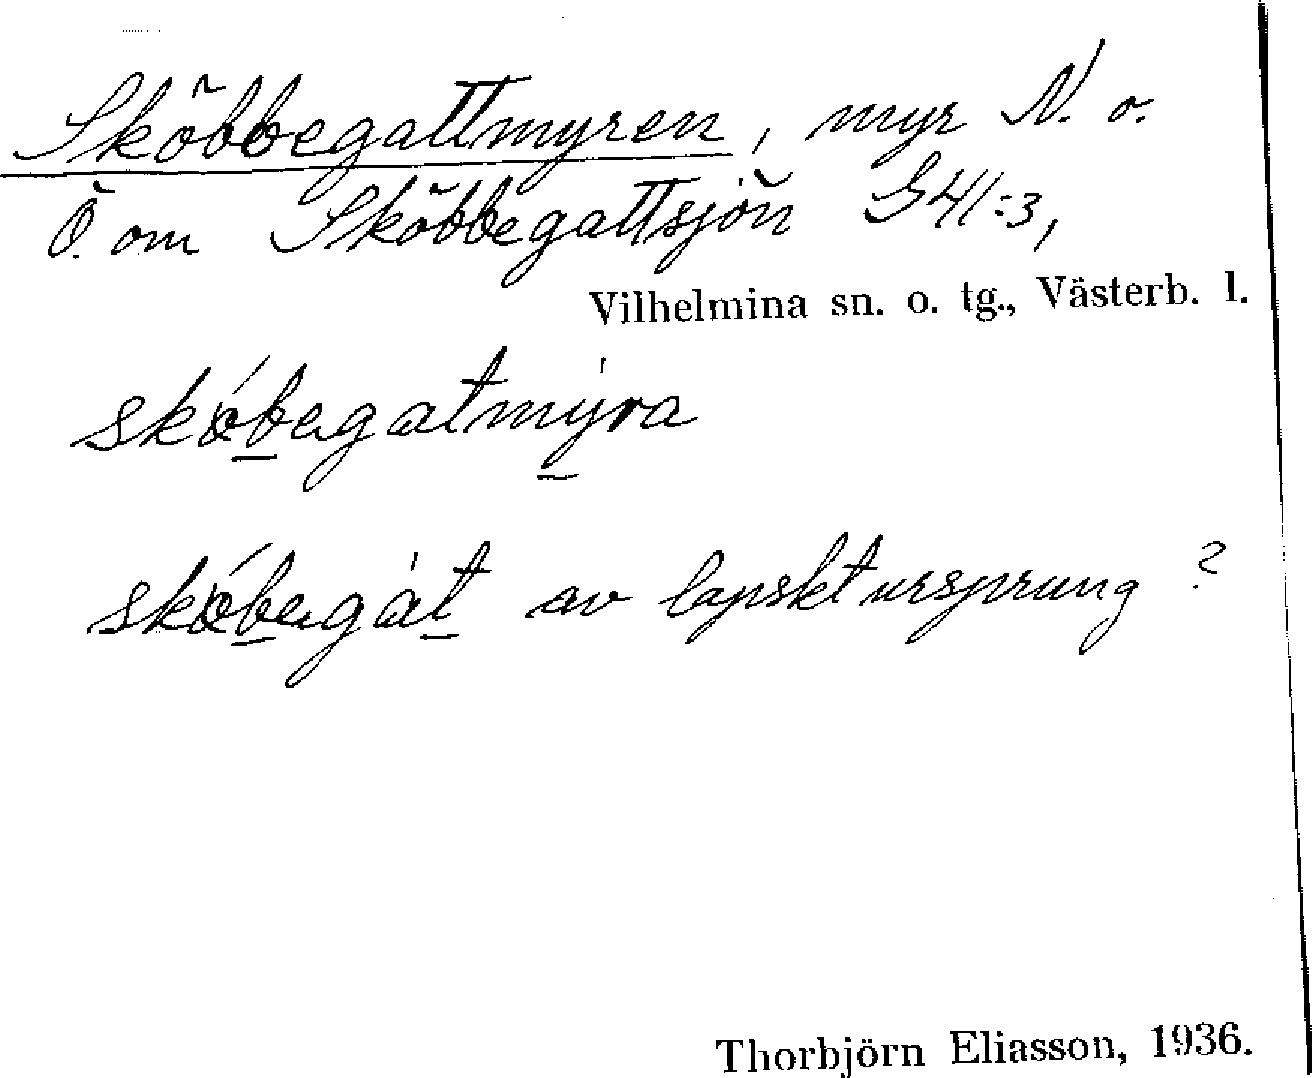 Sköbbegattmyren, myr N. o.
Ö. om Sköbbegattsjön G41:3,
Vilhelmina sn. o. tg., Västerb. l.
skö́begatmýra
skö́begát av lapskt ursprung?
Thorbjörn Eliasson, 1936.